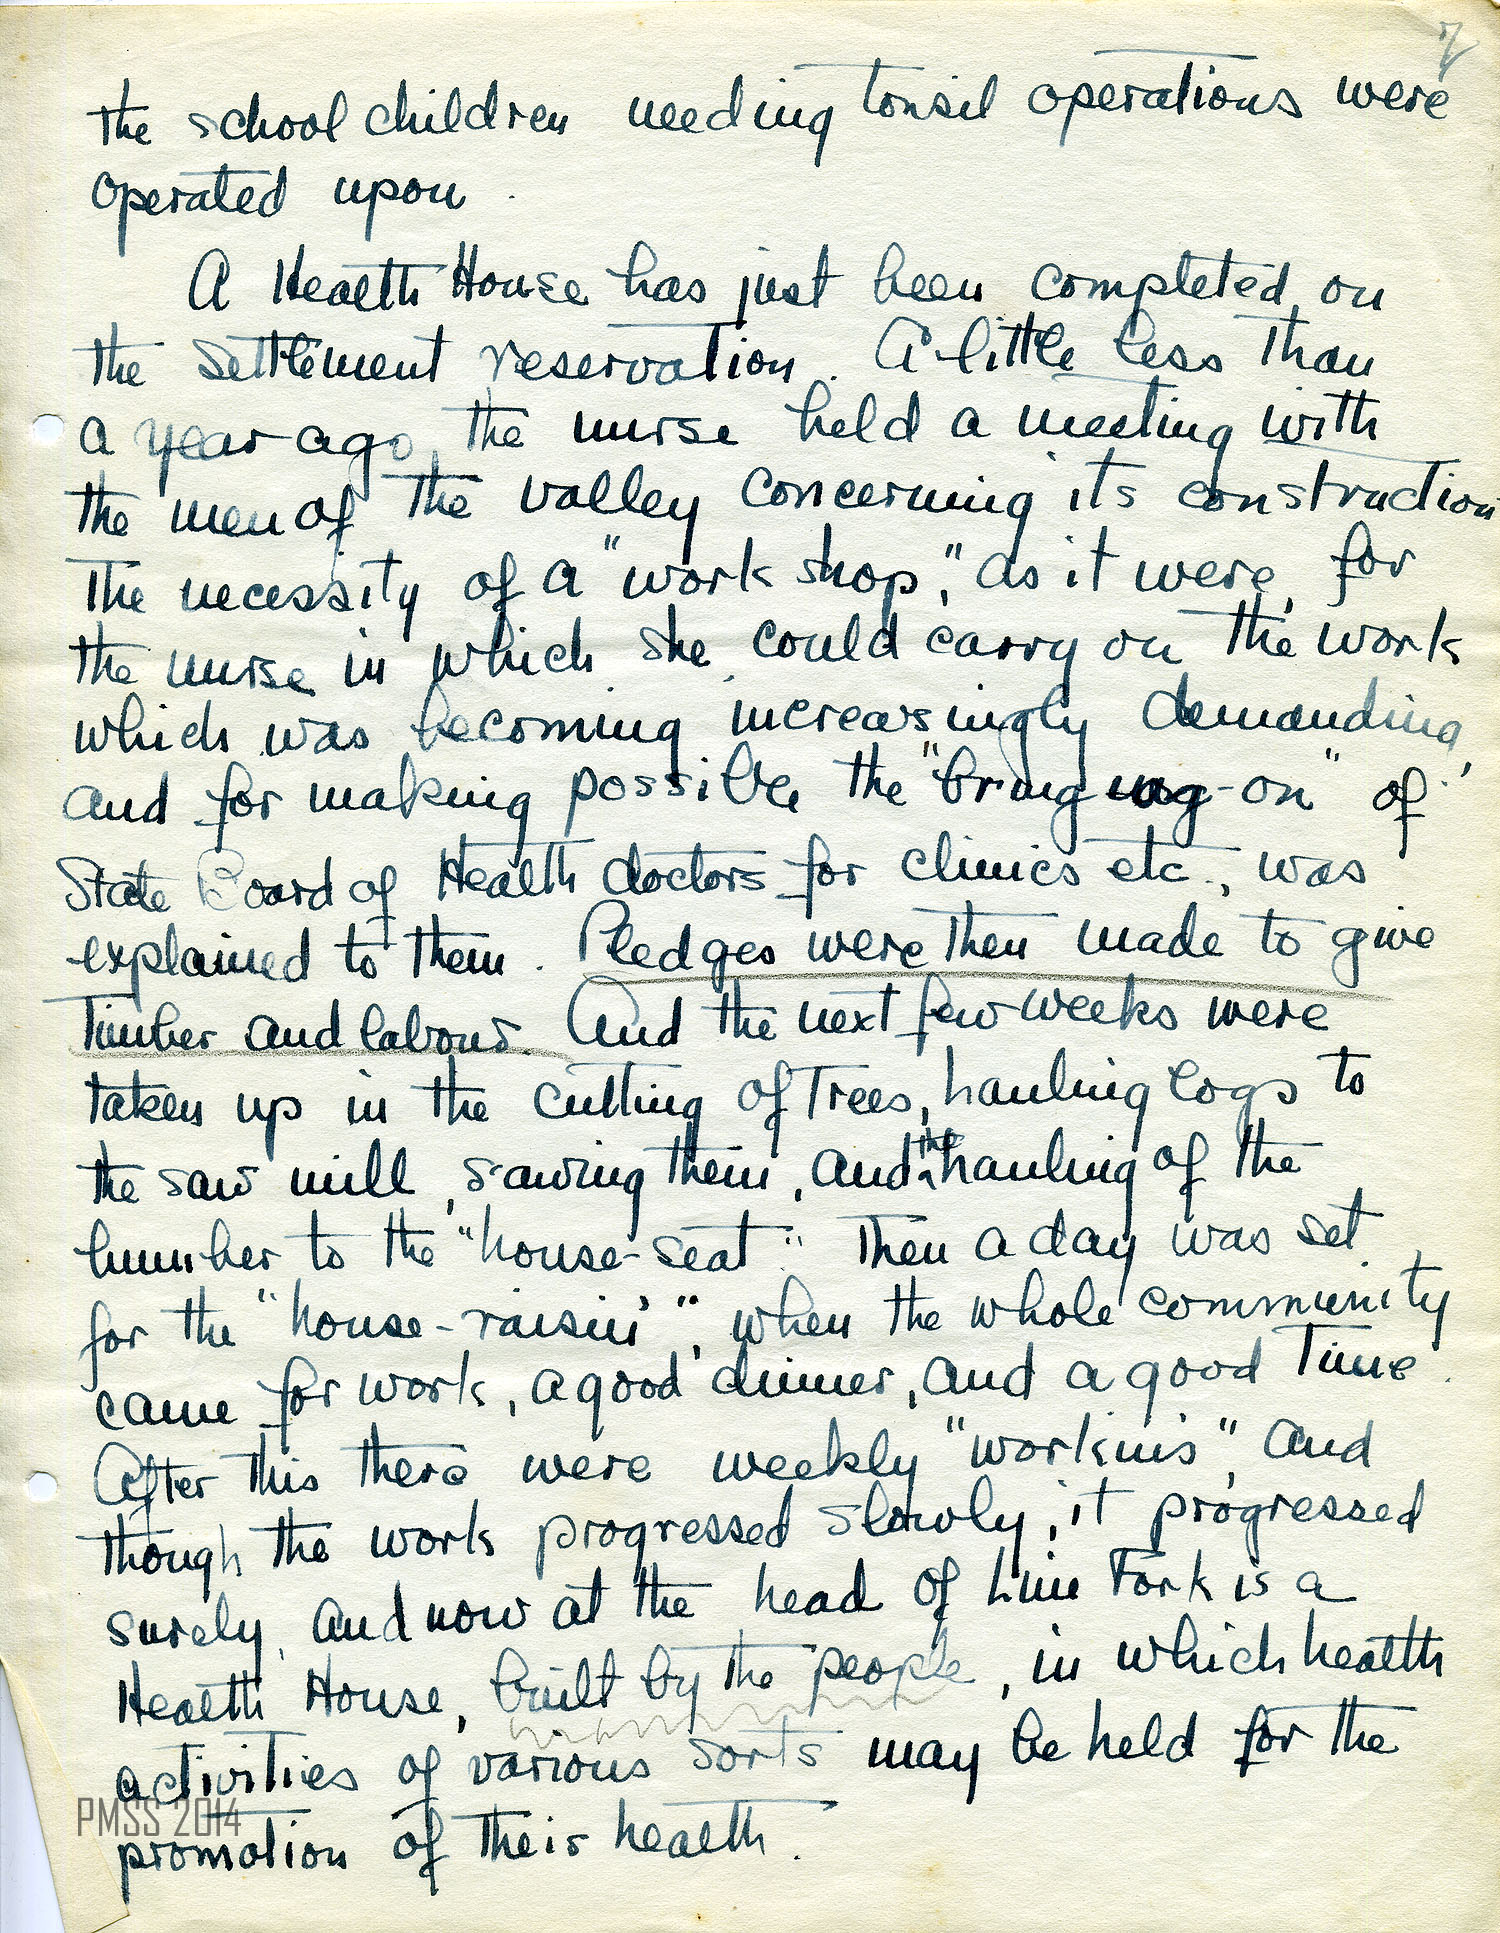 7
the school children needing tonsil operations were
operated upon.
A Health House has just been completed on
the settlement reservation. A little less than
a year ago the nurse held a meeting with
the men of the valley concerning its construction
The necessity of a "work shop," as it were, for
the nurse in which she could carry on the work
which was becoming increasingly demanding,
and for making possible the "bring-on" of
State Board of Health doctors for clinics etc., was
explained to them. Pledges were then made to give
timber and labour. And the next few weeks were
taken up in the cutting of trees, hauling logs to
the saw mill, sawing them, and the hauling of the
lumber to the "house-seat". Then a day was set
for the "house-raisin'", when the whole community
came for work, a good dinner, and a good time.
After this there were weekly "workin's", and
though the work progressed slowly, it progressed
surely, and now at the head of Line Fork is a
Health House, built by the people, in which health
activities of various sorts may be held for the
PMSS 2014
promotion of their health.